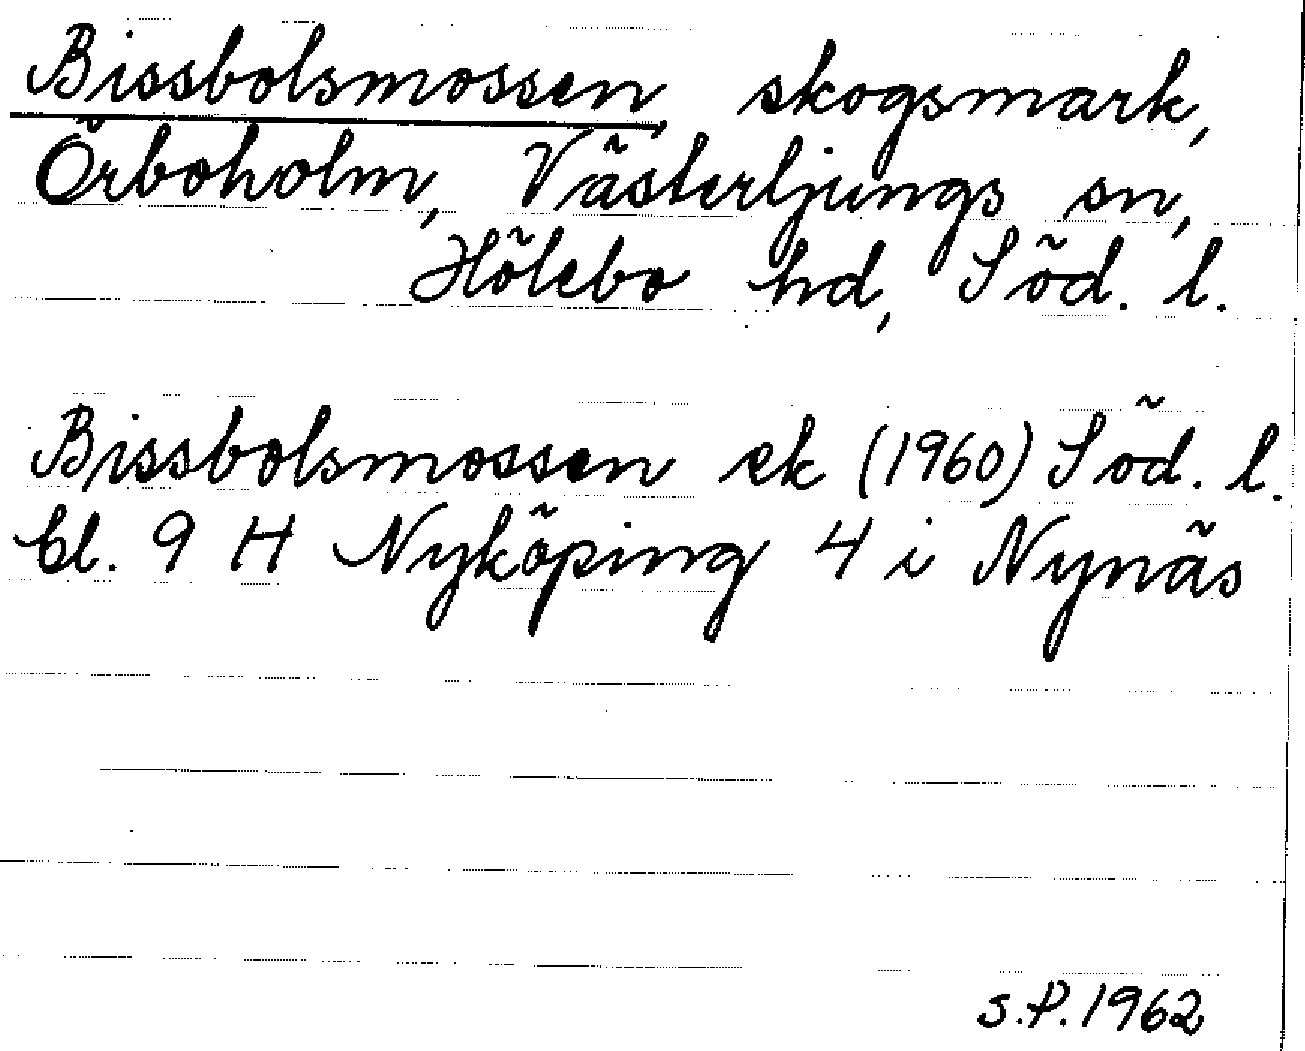 Bissbolsmossen, skogsmark,
Örboholm, Västerljungs sn,
Hölebo hd, Söd. l.
Bissbolsmossen ek (1960) Söd. l.
bl. 9 H Nyköping 4 i Nynäs
S.P. 1962